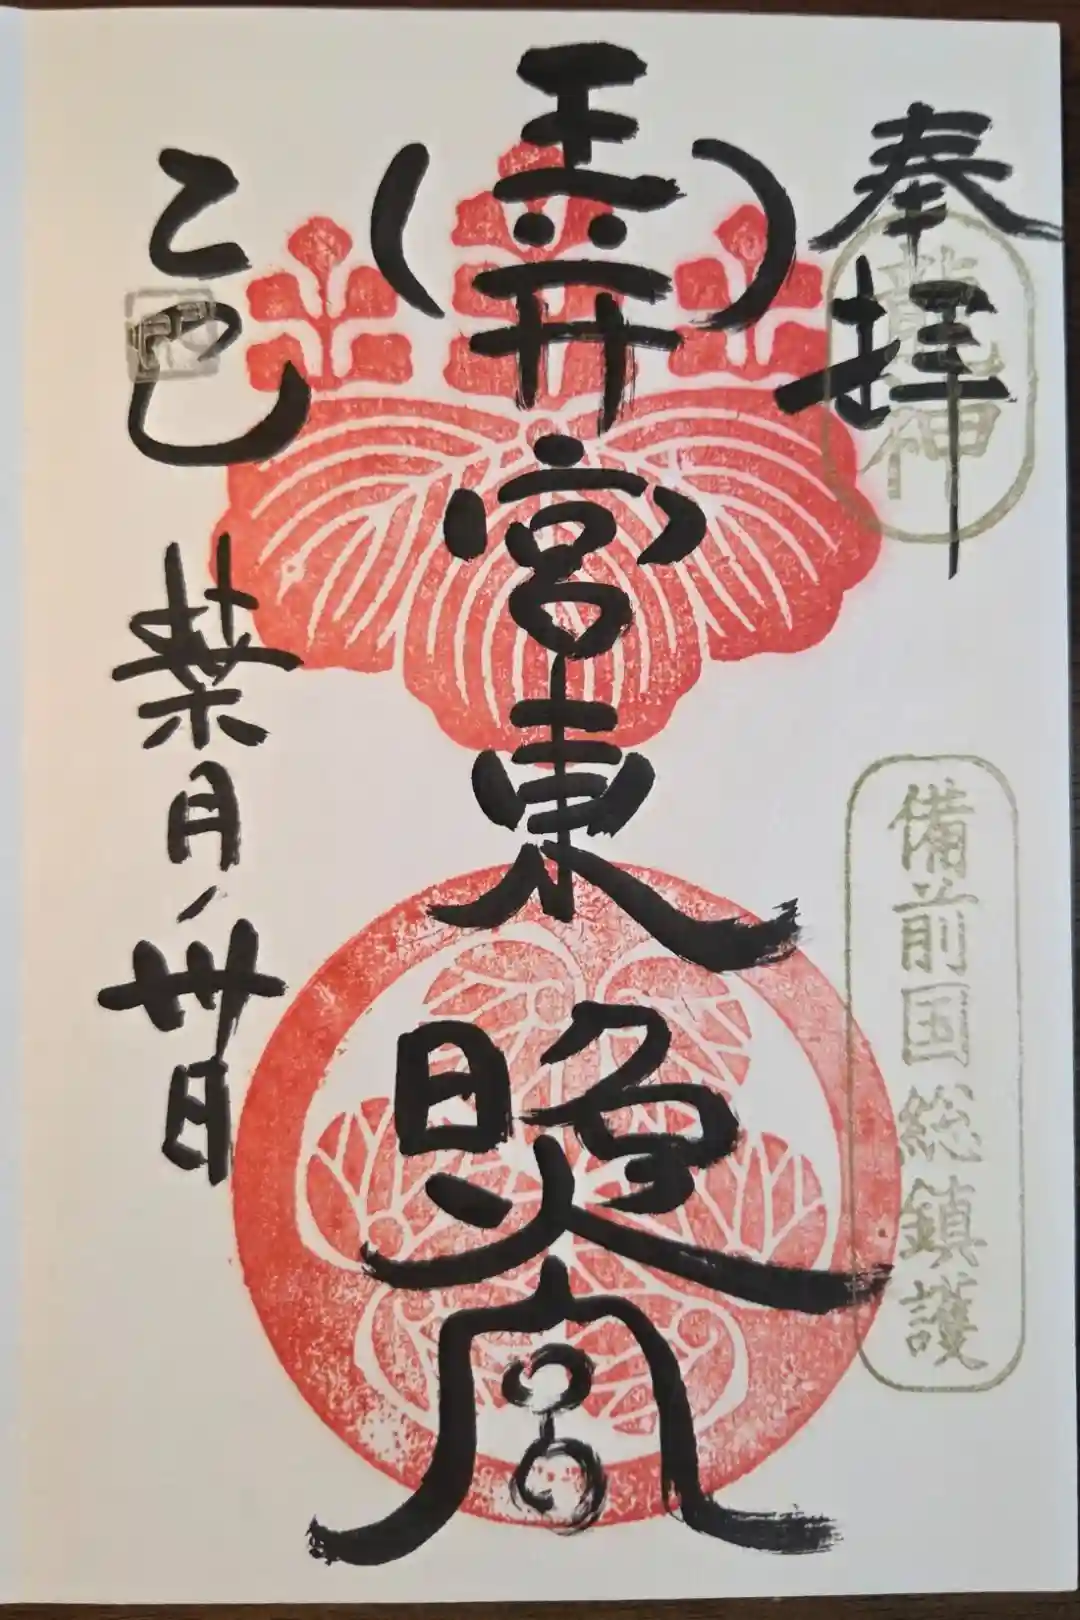 奉拝
龍神
備前国総鎮護
玉井宮東照宮
乙巳
葉月卅日